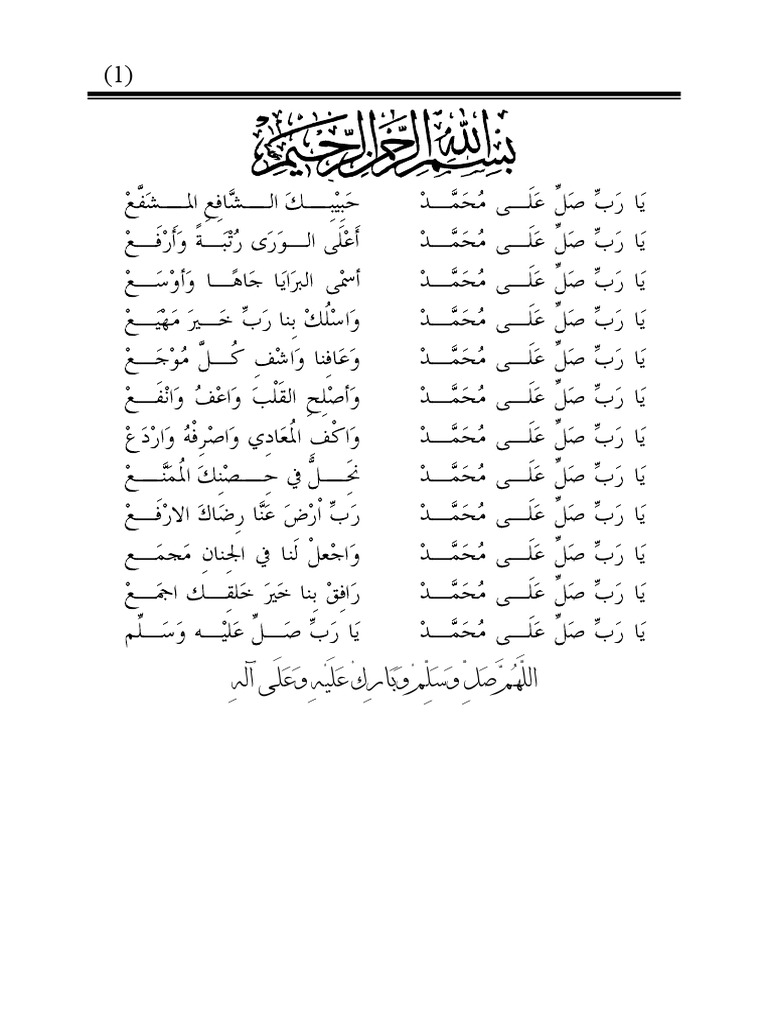 (1)
بِسْمِ اللهِ الرَّحْمٰنِ الرَّحِيْمِ
يَا رَبِّ صَلِّ عَلَى مُحَمَّدْ حَبِيْبِكَ الشَّافِعِ المشَفَّعْ
يَا رَبِّ صَلِّ عَلَى مُحَمَّدْ أَعْلَى الوَرَى رُتْبَةً وَأَرْفَعْ
يَا رَبِّ صَلِّ عَلَى مُحَمَّدْ أسْمْى البرَايَا جَاهًا وَأوْسَعْ
يَا رَبِّ صَلِّ عَلَى مُحَمَّدْ وَاسْلُكْ بِنا رَبِّ خَيرَ مَهْيَعْ
يَا رَبِّ صَلِّ عَلَى مُحَمَّدْ وَعَافِنا وَاشْفِ كُلَّ مُوْجَعْ
يَا رَبِّ صَلِّ عَلَى مُحَمَّدْ وَأصْلِحِ القَلْبَ وَاعْفُ وَانْفَعْ
يَا رَبِّ صَلِّ عَلَى مُحَمَّدْ وَاكْفِ المُعَادِي وَاصْرِفْهُ وَارْدَعْ
يَا رَبِّ صَلِّ عَلَى مُحَمَّدْ نَحِلُّ في حِصْنِكَ المُمَنَّعْ
يَا رَبِّ صَلِّ عَلَى مُحَمَّدْ رَبِّ اْرْضَ عَنَّا رِضَاكَ الارْفَعْ
يَا رَبِّ صَلِّ عَلَى مُحَمَّدْ وَاجْعلْ لَنا في الجِنانِ مَجمَع
يَا رَبِّ صَلِّ عَلَى مُحَمَّدْ رَافِقْ بِنا خَيرَ خَلقِك اجمَعْ
يَا رَبِّ صَلِّ عَلَى مُحَمَّدْ يَا رَبِّ صَلِّ عَلَيْه وَسَلِّم
اللَّهُمَّ صَلِّ وَسَلِّمْ وَبَارِكْ عَلَيْهِ وَعَلَى آلِهِ